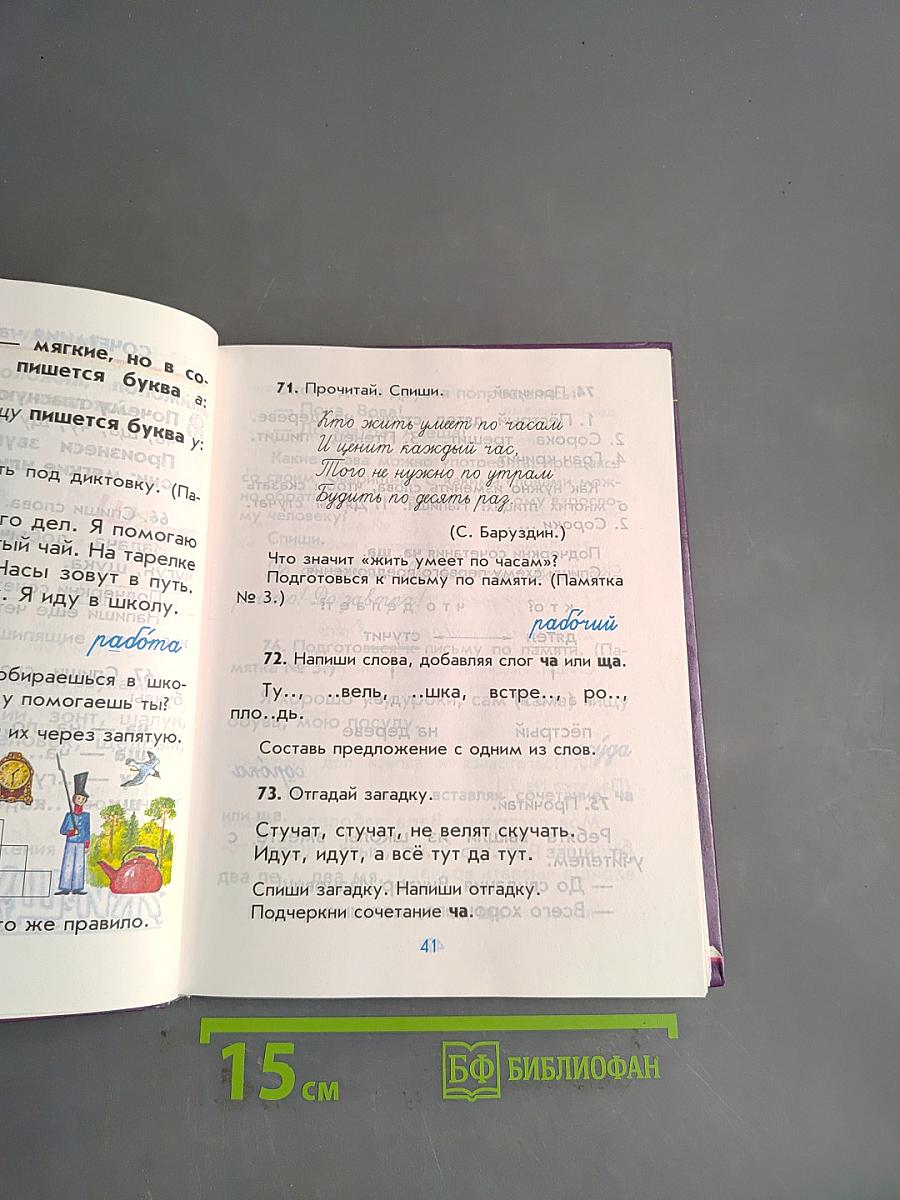 — мягкие, но в со-
пишется буква а:
щу пишется буква у:
ть под диктовку. (Па-
го дел. Я помогаю
тый чай. На тарелке
Часы зовут в путь.
. Я иду в школу.
работа
обираешься в шко-
у помогаешь ты?
их через запятую.
то же правило.
71. Прочитай. Спиши.
Кто жить умеет по часам
И ценит каждый час,
Того не нужно по утрам
Будить по десять раз.
(С. Баруздин.)
Что значит «жить умеет по часам»?
Подготовься к письму по памяти. (Памятка
№ 3.)
рабочий
72. Напиши слова, добавляя слог ча или ща.
Ту.., ..вель, ..шка, встре.., ро..,
пло..дь.
Составь предложение с одним из слов.
73. Отгадай загадку.
Стучат, стучат, не велят скучать.
Идут, идут, а всё тут да тут.
Спиши загадку. Напиши отгадку.
Подчеркни сочетание ча.
41
15 см
БФ БИБЛИОФАН